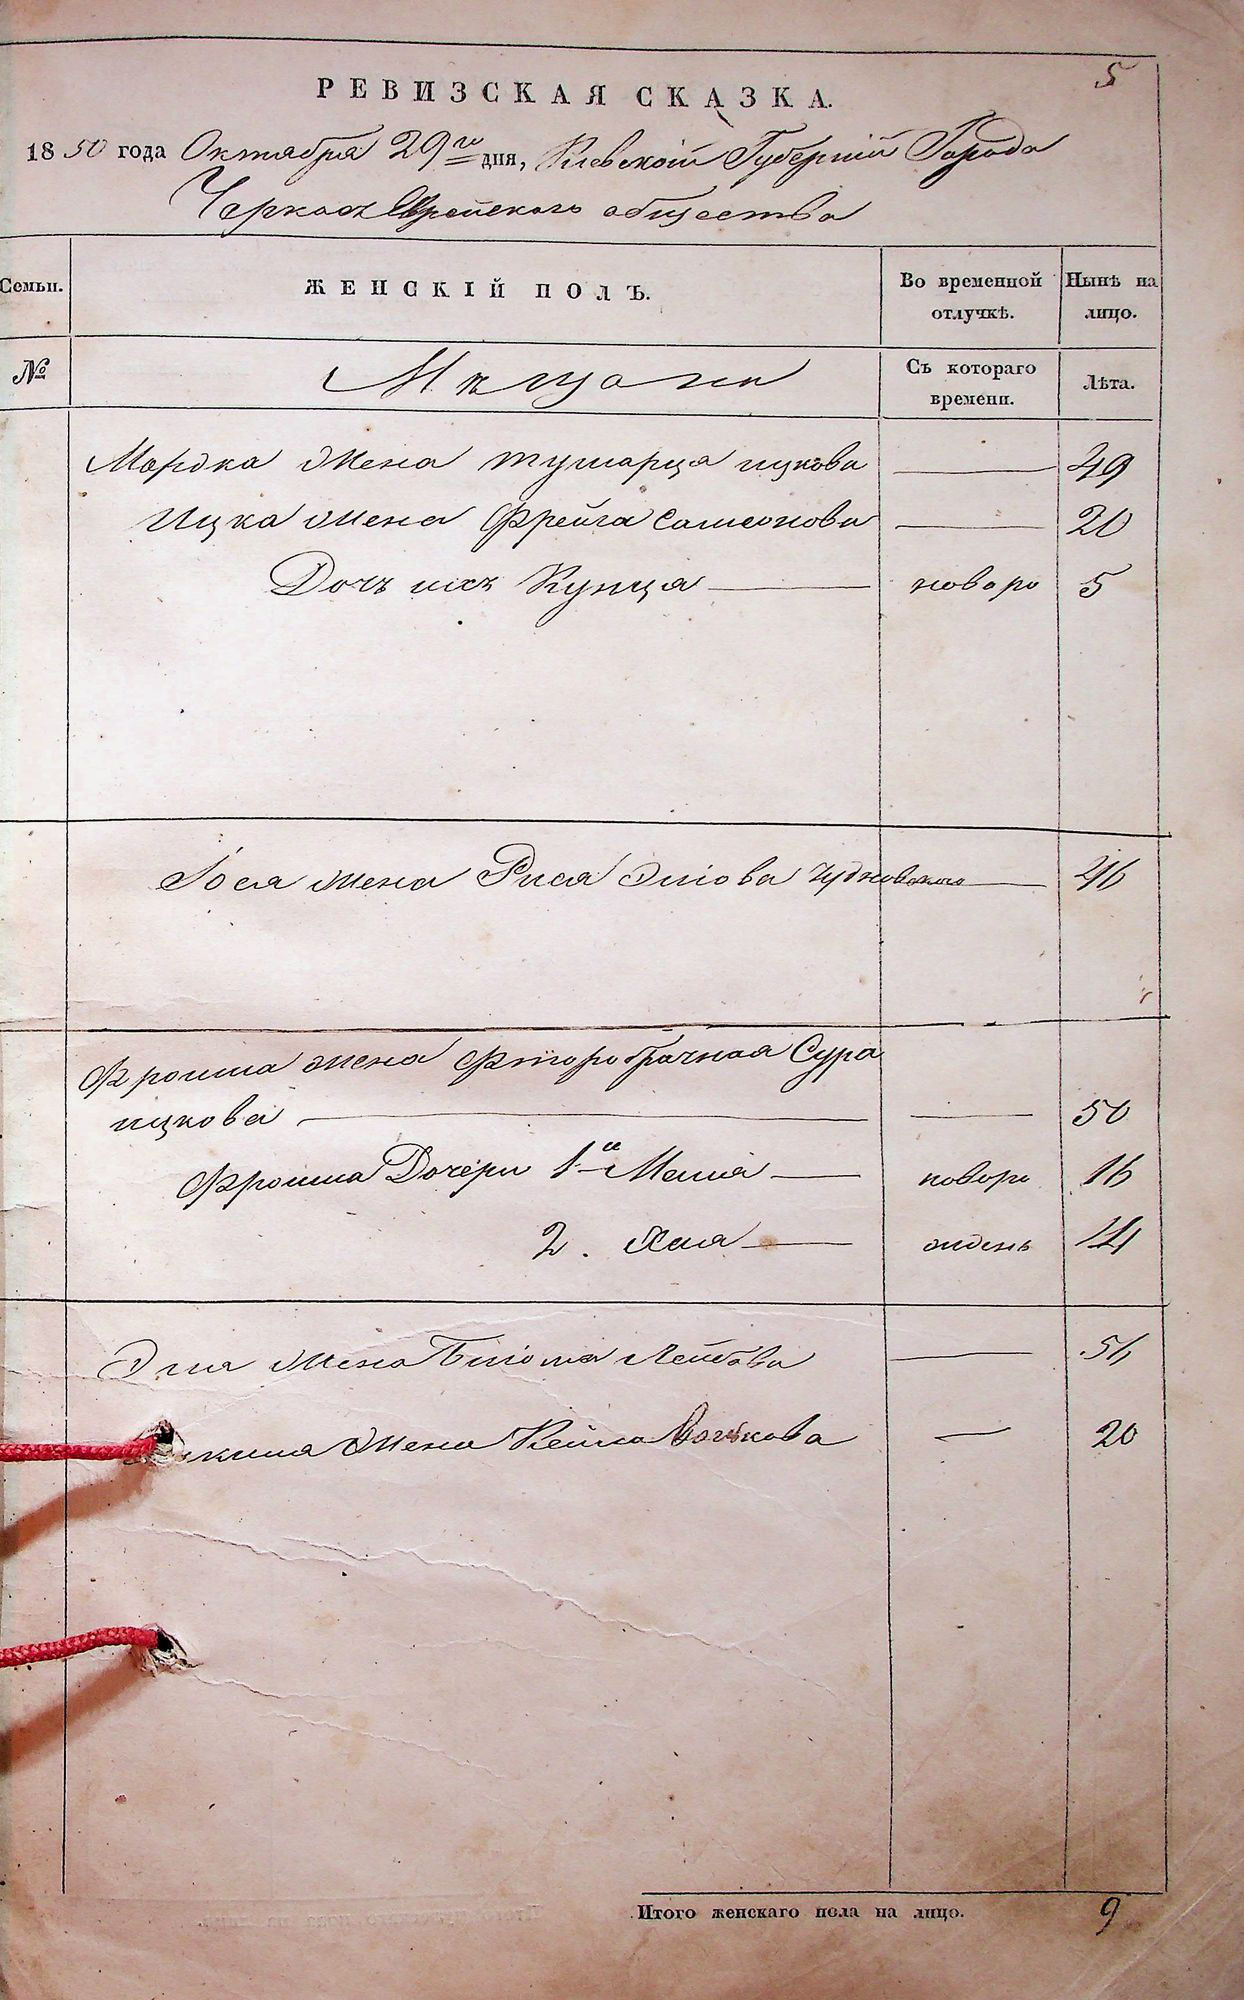 5
РЕВИЗСКАЯ СКАЗКА.
1850 года Октября 29го дня, Кіевской Губерніи Города
Черкасъ Еврейскаго общества
Семьи.
ЖЕНСКІЙ ПОЛЪ.
Во временной отлучкѣ.
Нынѣ на лицо.
№
Мѣщане
Съ котораго времени.
Лѣта.
Мордка жена ицкова — 49
Ицка жена Фрейга Самсонова — 20
Дочъ ихъ Кунца — новоро 5
Іося жена Рися Эліова Чудновскаго — 46
Фроима жена фторобрачная Сура
ицкова — — 50
Фроима Дочери 1я Маня — новоро 16
2. Хая — ждень 14
Эля жена Лейбова — 56
жена Кейла Волькова — 20
Итого женскаго пола на лицо. 9